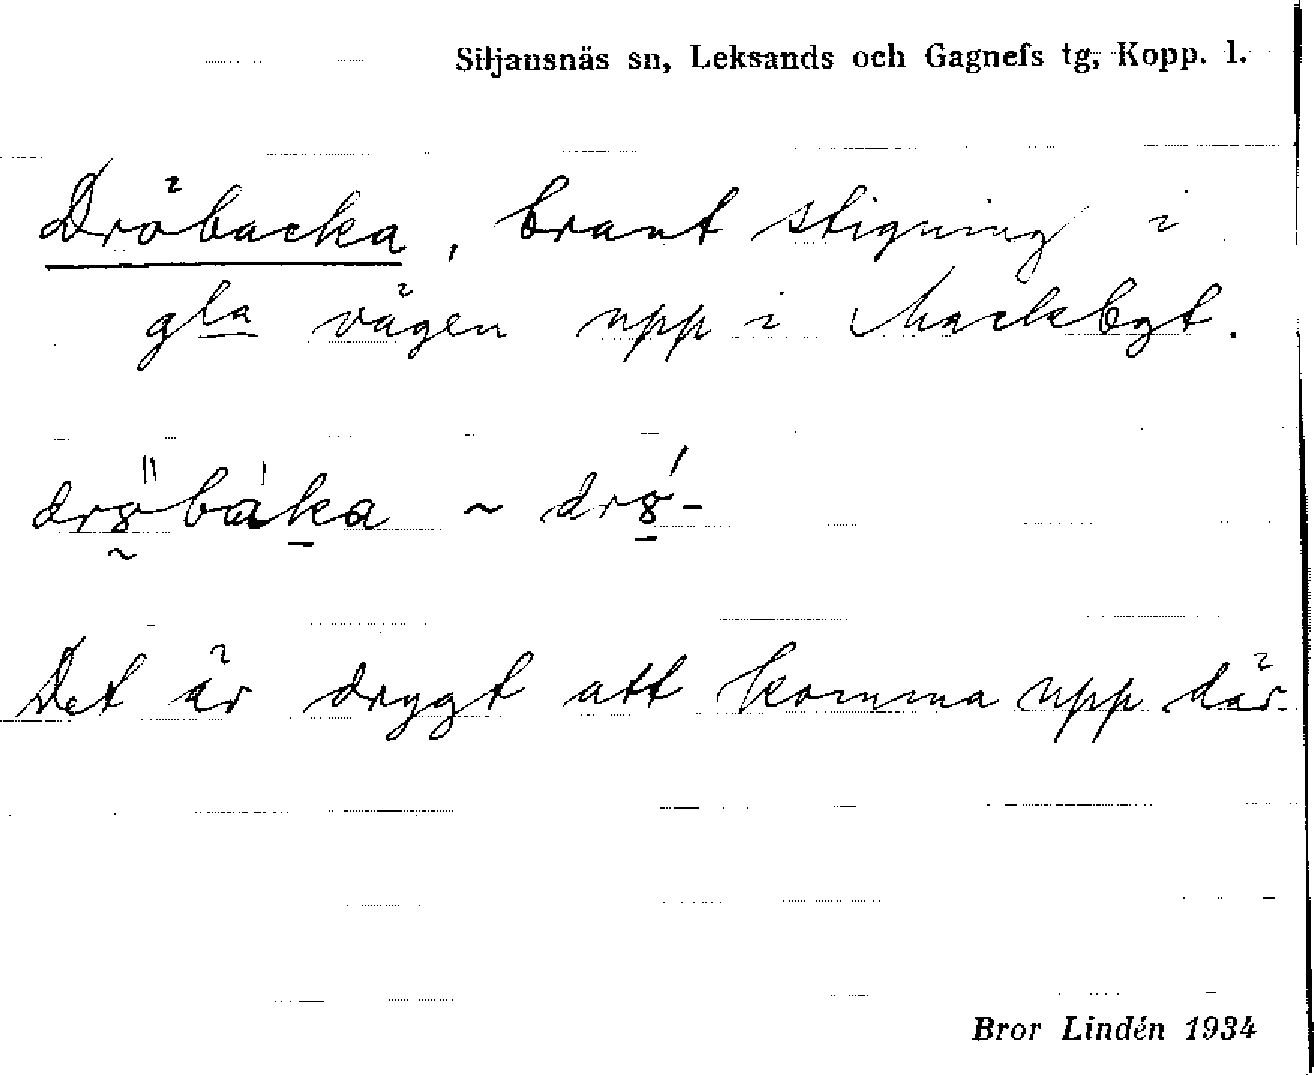 Siljansnäs sn, Leksands och Gagnefs tg, Kopp. l.
Dröbacka, brant stigning i
gla vägen upp i Mackbyt.
Det är drygt att komma upp där
Bror Lindén 1934